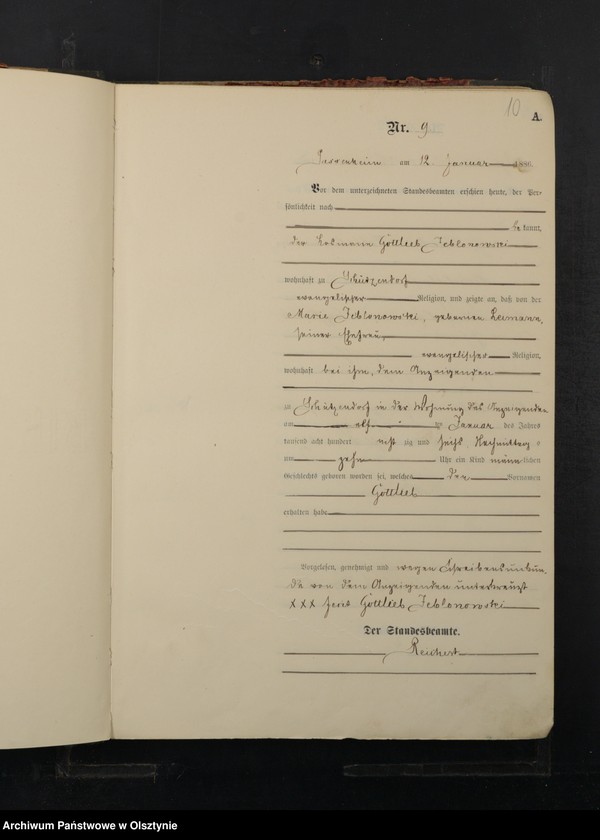 10
A.
Nr. 9.
Passenheim am 12. Januar 1886.
Vor dem unterzeichneten Standesbeamten erschien heute, der Per-
sönlichkeit nach
be kannt,
der Losmann Gottlieb Jeblonowski
wohnhaft zu Schützendorf
evangelischer Religion, und zeigte an, daß von der
Marie Jeblonowski, geborenen Reimann,
seiner Ehefrau,
evangelischer Religion,
wohnhaft bei ihm, dem Anzeigenden
zu Schützendorf in der Wohnung des Anzeigenden
am elf ten Januar des Jahres
tausend acht hundert acht zig und sechs Nachmittags
um zehn Uhr ein Kind männ lichen
Geschlechts geboren worden sei, welches den Vornamen
Gottlieb
erhalten habe
Vorgelesen, genehmigt und wegen Schreibensunkun-
de von dem Anzeigenden unterkreuzt
XXX Gottlieb Jeblonowski
Der Standesbeamte.
Reichert
Archiwum Państwowe w Olsztynie